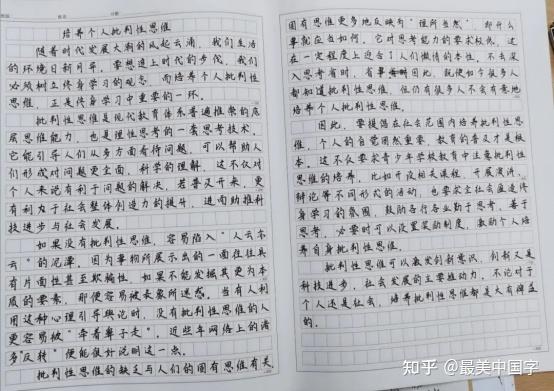 培养个人批判性思维
随着时代发展大潮的风起云涌，我们生活
的环境日新月异，要想追上时代的步伐，我们
必须树立终身学习的观念，而培养个人批判性
思维，正是终身学习中重要的一环。
批判性思维是现代教育体系普遍推崇的高
层思维能力，也是理性思考的一套思考技术，
它能引导人们从多方面看待问题，可以帮助人
们形成对问题更全面，科学的理解，这不仅对
个人来说有利于问题的解决，若普及开来，更
有利于社会整体创造力的提升，进而助推科
技进步与社会发展。
如果没有批判性思维，容易陷入"人云亦
云"的泥潭，因为事物所展示出的一面往往具
有片面性甚至欺骗性，如果不能发掘其更为本
质的要素，那便容易被表象所迷惑，当有人利
用这种心理引导舆论时，没有批判性思维的人
更容易被"牵着鼻子走"，近些年网络上的诸
多反转"便能很好说明这一点。
批判性思维的缺乏与人们的固有思维有关
固有思维更多地反映为"理所当然"，即什么
事就应当如何，它对思考能力的要求较低，这
在一定程度上迎合了人们懒惰的本性，不去深
入思考省时，省事 因此，既使如今很多人
都知道批判性思维，但仍有很多人不会有意地
培养个人批判性思维。
因此，要提倡在社会范围内培养批判性思
维，个人的自觉固然重要，教育的普及才是根
本，这不仅要求青少年学校教育中注意批判性
思维的培养，比如开设相关课程，开展演讲，
辩论等不同形式的活动，也要求全社会营造终
身学习的氛围，鼓励各行各业勤于思考，善于
思考，必要时可以设置奖励制度，激励个人培
养自身批判性思维。
批判性思维可以激发创新意识，创新又是
科技进步，社会发展的主要推动力，不论对于
个人还是社会，培养批判性思维都是大有裨益
的。
知乎 @最美中国字